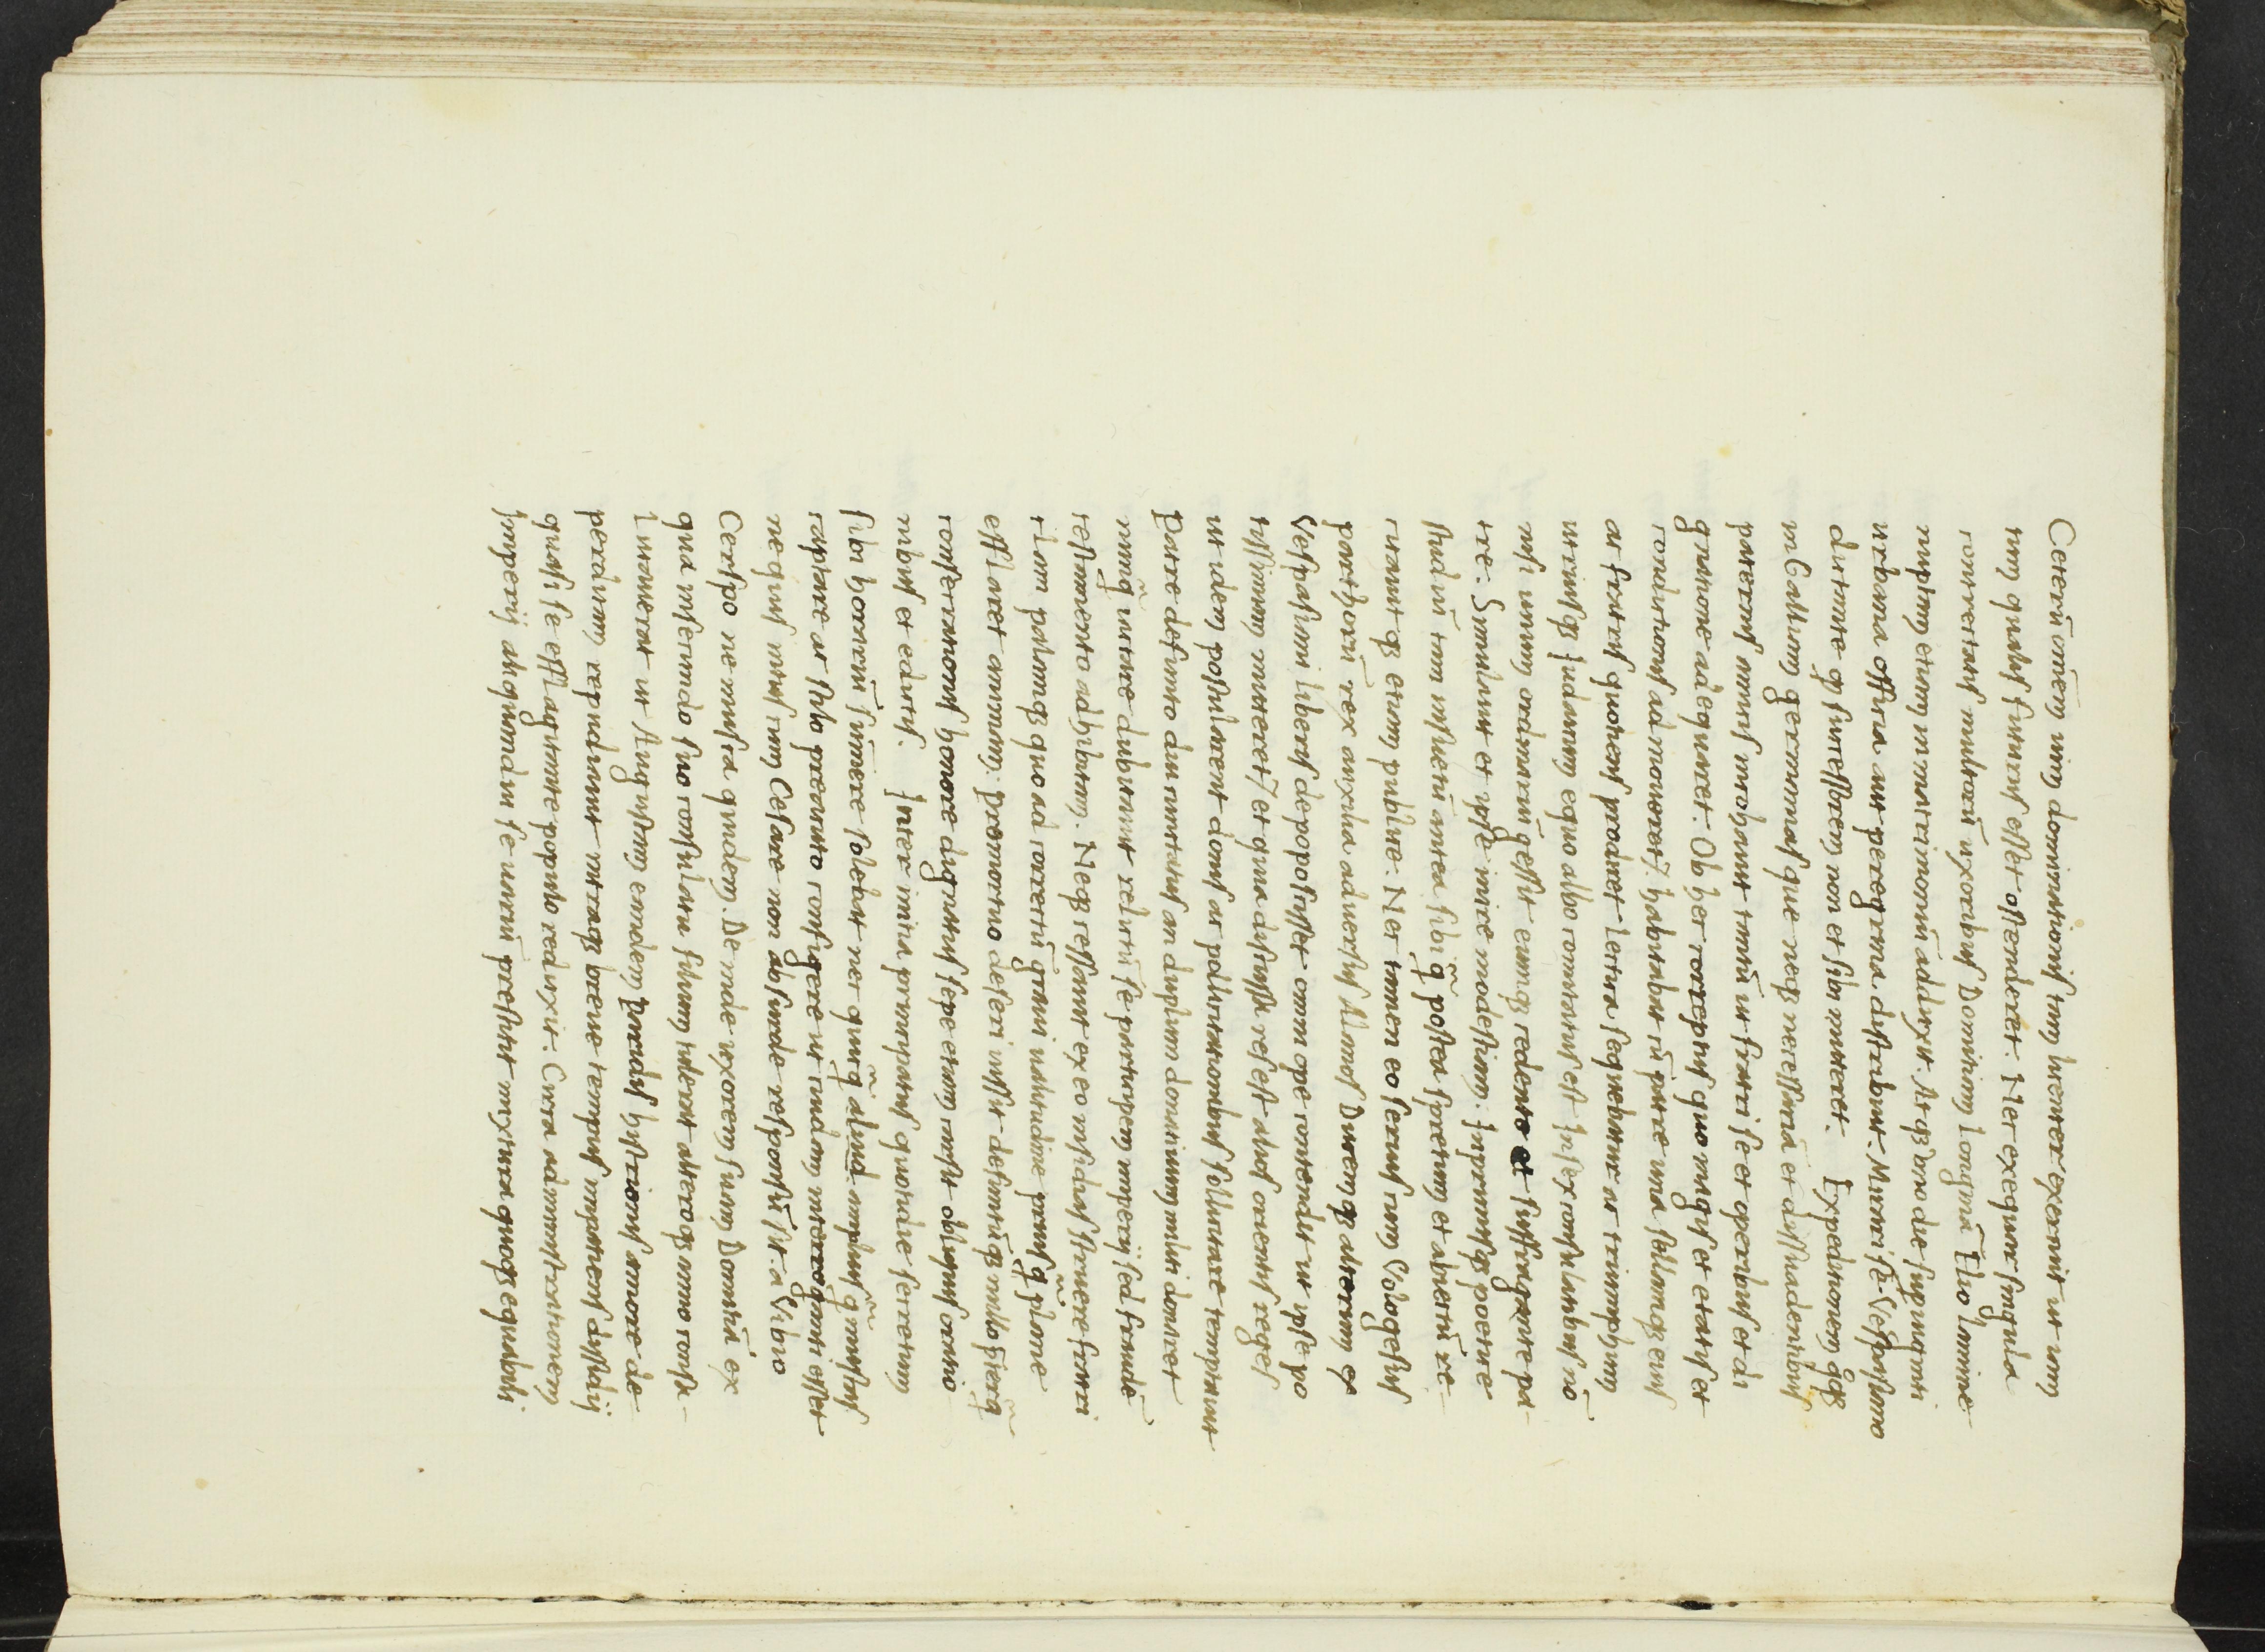 Ceterū omēm uim dominationis tam licenter exercuit ut iam
tum qualis futurus esset ostenderet. Nec exequar singula
contrectatis multorū uxoribus Domitiam Longinā Elio lamine
nuptam etiam in matrimoniū adduxit. Atqȝ uno die supuiginti
urbana officia aut peregrina distribuit. Mirari se Vespasiano
dictante qp successorem non et sibi mitteret. Expeditionem qqȝ
in Galliam germaniasque neqȝ necessariā et dissuadentibus
paternis amicis inchoauit tantū ut fratri se et operibus et di
gnatione adequaret. Ob hec correptus quo magis et etatis et
conditionis admoneret? habitabat cū patre una sellamqȝ eius
ac fratris quotiens prodiret lectica sequebatur ac triumphum
utriusqȝ Judaicum equo albo comitatus est In sex consulatibus nō
nisi unum ordinariū gessit eumqȝ cedento et suffragante pa-
tre. Simulauit et ipse mire modestiam: Inprimisqȝ poetice
studiū tam insuetū antea sibi q̃ postea spretum et abiectū re-
citauitqȝ etiam publice. Nec tamen eo secius cum Vologesus
parthorū rex auxilia aduersus Alanos Ducemqȝ alterum ex
Vespasiani liberis depoposcisset omni ope contendit ut ipse po
tissimum mitteret? et quia discussa res est alios orientis reges
ut idem postularent donis ac pollicitationibus sollicitare temptauit
Patre defuncto diu cunctatus an duplum donatiuum militi donaret
nunq̃ iactare dubitauit relictū se participem imperij sed fraudē
testamento adhibitam. Neqȝ cessauit ex eo insidias struere fratri
clam palamqȝ quo ad correctū graui ualitudine prius q̃ plane
efflaret animam: pro mortuo deseri iussit defunctūqȝ nullo preterq̃
consecrationis honore dignatus sepe etiam carpsit obliquis oratio
nibus et edictis. Inter initia principatus quotidie secretum
sibi horarū sumere solebat nec quicq̃ aliud amplius q̃ muscas
captare ac stilo preacuto configere ut cuidam interroganti esset
ne quis intus cum Cesare non absurde responsū sit a Vibio
Crispo ne musca quidem. Deinde uxorem suam Domitiā ex
qua in secundo suo consulatu filium tulerat alteroqȝ anno consa-
lutauerat ut Augustam eandem paridis histrionis amore de
perditam repudiauit intraqȝ breue tempus impatiens dissidij
quasi se efflagitante populo reduxit. Circa administrationem
Imperij aliquandiu se uariū prestitit mixtura quoqȝ equabili